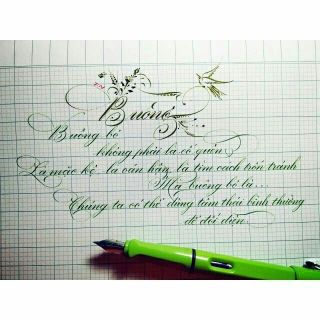 Buông
Buông bỏ
không phải là cố quên
Là mặc kệ, là oán hận, là tìm cách trốn tránh
Mà buông bỏ là...
Chúng ta có thể dùng tâm thái bình thường
để đối diện.